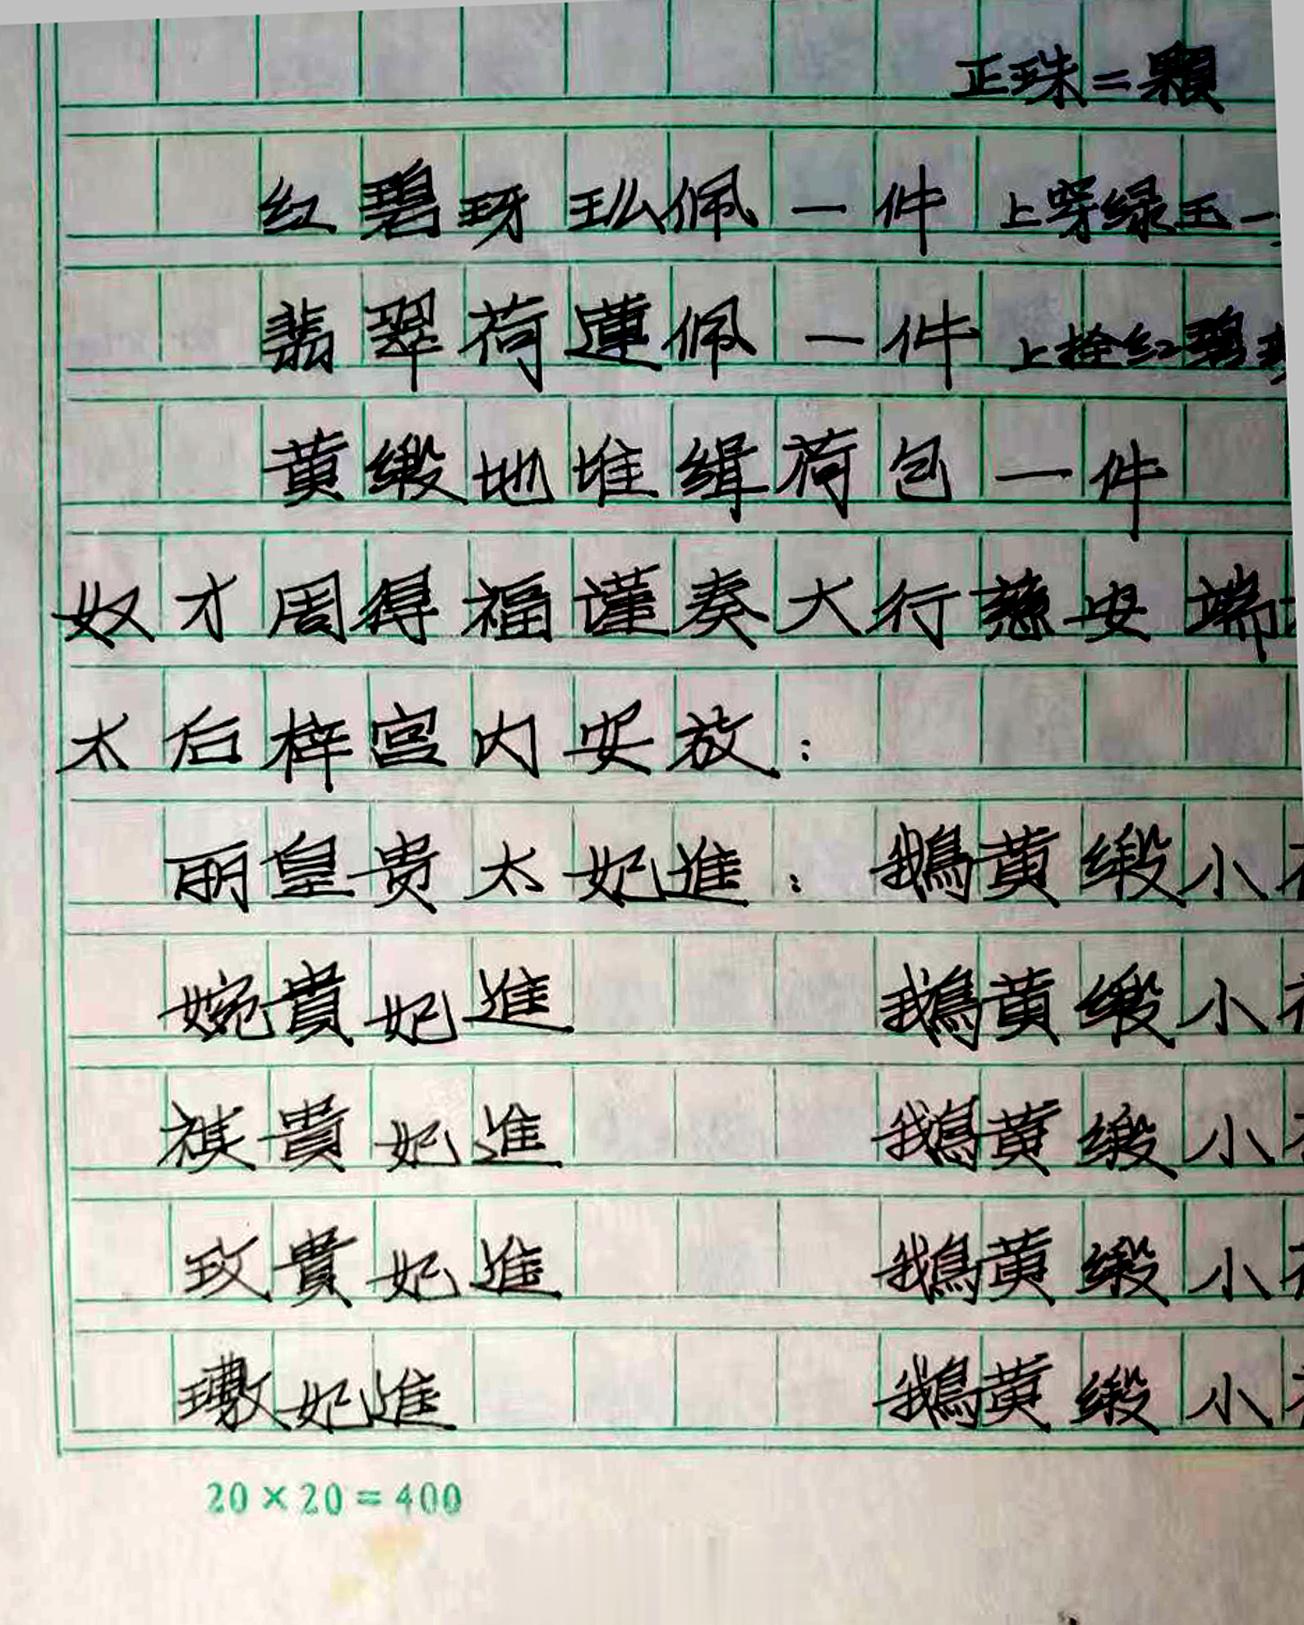 正珠二顆
红碧玡玜佩一件 上穿绿玉一
翡翠荷蓮佩一件 上拴红碧
黄缎地堆缉荷包一件
奴才周得福谨奏大行慈安端
太后梓宫内安放：
丽皇贵太妃進：鵝黄缎小
婉貴妃進 鵝黄缎小
祺貴妃進 鵝黄缎小
玫貴妃進 鵝黄缎小
璷妃進 鵝黄缎小
20×20=400